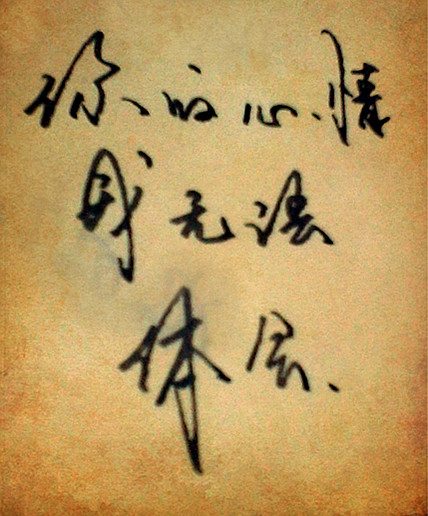 你的心情
我无法
体